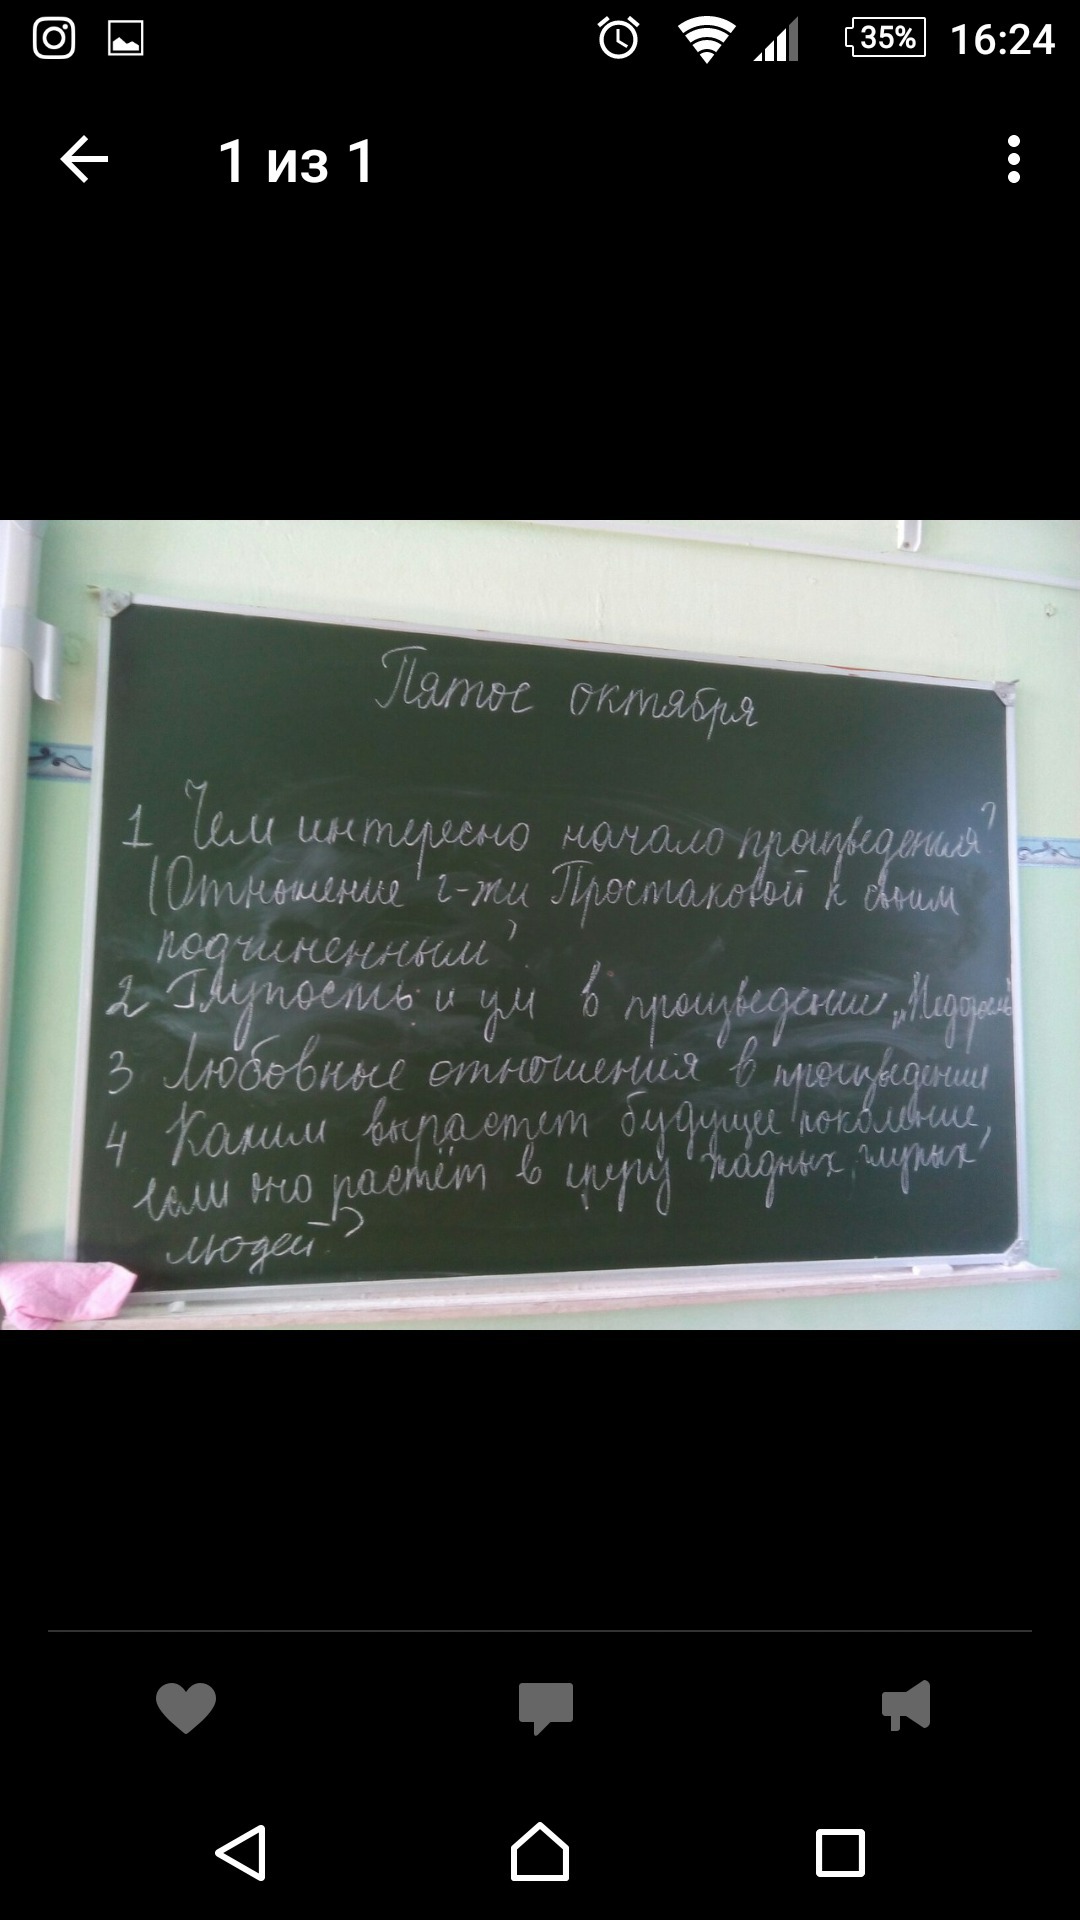 35% 16:24
1 из 1
Пятое октября
1 Чем интересно начало произведения?
(Отношение г-жи Простаковой к своим
подчиненным?
2 Глупость и ум в произведении „Недоросль"
3 Любовные отношения в произведении
4 Каким вырастет будущее поколение,
если оно растёт в кругу жадных, глупых
людей?